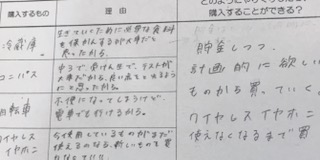 購入するもの
理由
購入することができる？
冷蔵庫。
生きていくために必要な食料
を保存するが大事だと
思ったから。
コンパス
中3で、受験生で、テストが
大事だから、良い点を出せるよう
にと思ったから。
自転車
不便になってしまうけど、
電車でも行けるから。
ワイヤレス
イヤホン
今使用しているものがまだ
使えるのなら、新しいものを買
貯金しつつ、
計画的に欲しい
ものから買っていく。
ワイヤレスイヤホン
使えなくなるまで買